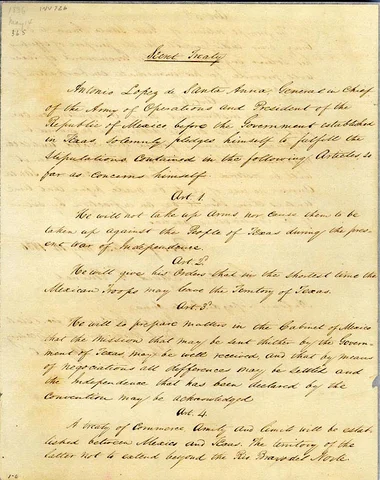 1836
May 14
Secret Treaty
Antonio Lopez de Santa Anna, General in Chief
of the Army of Operations and President of the
Republic of Mexico before the Government established
in Texas, solemnly pledges himself to fulfill the
Stipulations contained in the following Articles so
far as concerns himself
Art. 1
He will not take up arms nor cause them to be
taken up against the People of Texas during the pres-
ent war of Independence
Art 2d
He will give his Orders that in the shortest time the
Mexican Troops may leave the Territory of Texas.
Art. 3d
He will so prepare matters in the Cabinet of Mexico
that the Mission that may be sent thither by the Govern-
ment of Texas may be well received, and that by means
of negociations all differences may be settled and
the Independence that has been declared by the
Convention may be acknowledged
Art. 4.
A treaty of Commerce, Amity and limits will be estab-
lished between Mexico and Texas. The territory of the
latter not to extend beyond the Rio Bravo del Norte